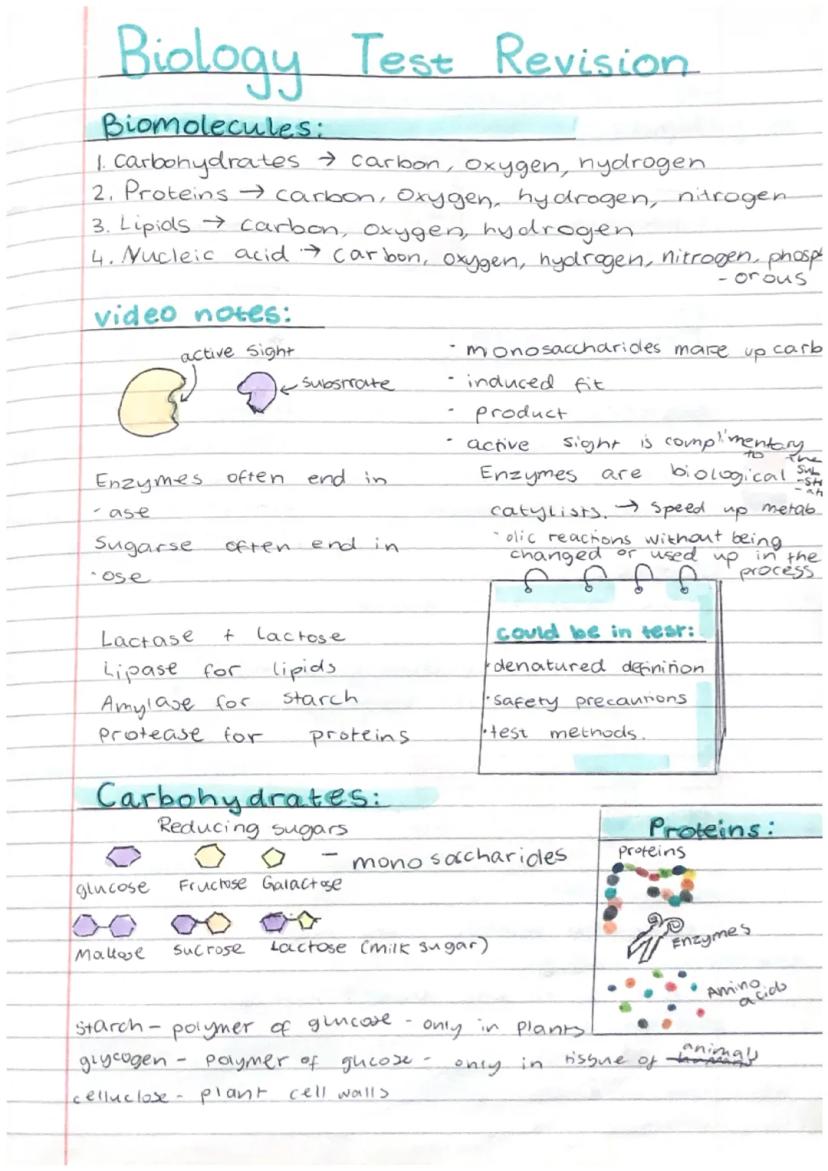 Biology Test Revision
Biomolecules:
1. Carbohydrates → carbon, oxygen, hydrogen
2. Proteins → carbon, oxygen, hydrogen, nitrogen
3. Lipids → carbon, oxygen, hydrogen
4. Nucleic acid → carbon, oxygen, hydrogen, nitrogen, phosp
- orous
video notes:
active sight
substrate
Enzymes often end in
- ase
Sugarse often end in
- ose
Lactase + lactose
Lipase for lipids
Amylase for starch
Protease for proteins
· monosaccharides make up carb
· induced fit
· product
· active sight is complimentary
to the
sub
-str
-at
Enzymes are biological
catylists. → speed up metab
- olic reactions without being
changed or used up in the
process
could be in test:
· denatured definition
· safety precautions
· test methods.
Carbohydrates:
Reducing sugars
- monosaccharides
glucose Fructose Galactose
Maltose sucrose Lactose (milk sugar)
Proteins:
Proteins
Enzymes
Amino
acids
starch - polymer of glucose - only in plants
animals
glycogen - polymer of glucose - only in tissue of humans
celluclose - plant cell walls